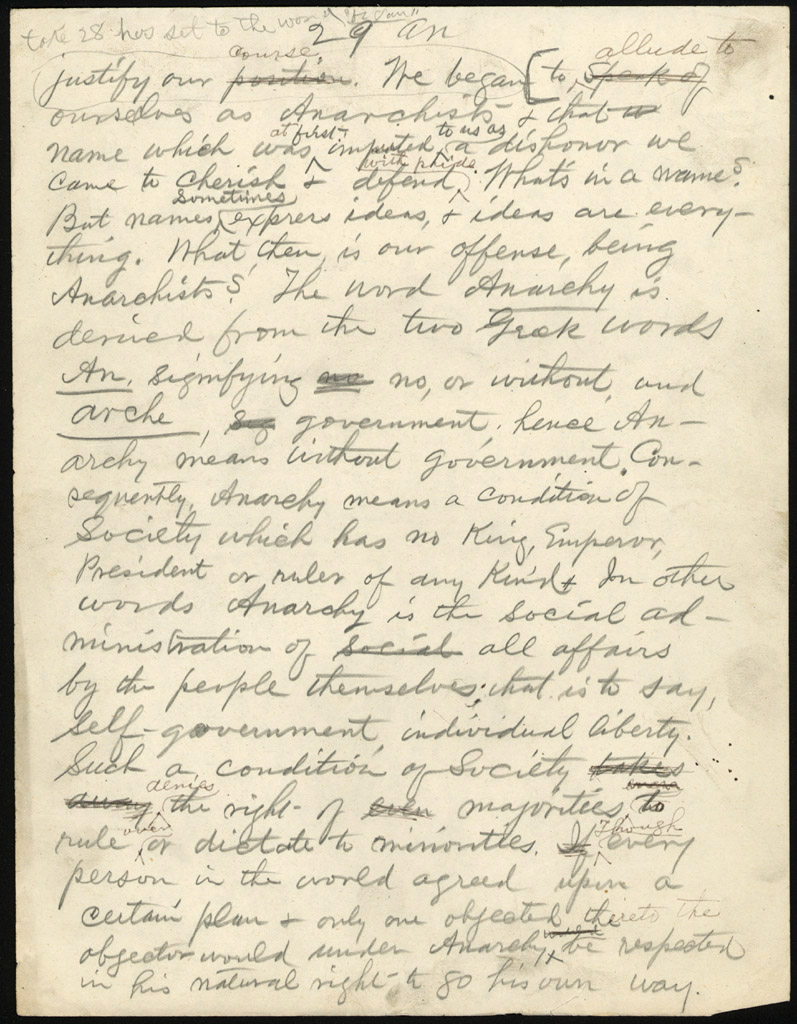 take 28 has set to the word "began"
29 an
course allude to
justify our position. We began [to speak of
ourselves as Anarchists & that
at first to us as
name which was imputed a dishonor we
with pride
came to cherish & defend. What's in a name?
Sometimes
But names express ideas, & ideas are every-
thing. What, then, is our offense, being
Anarchists? The word Anarchy is
derived from the two Greek words
An, signifying no no, or without, and
arche, sig government. hence An-
archy means without government. Con-
sequently, Anarchy means a condition of
Society which has no King, Emperor,
President or ruler of any kind & In other
words Anarchy is the social ad-
ministration of social all affairs
by the people themselves; that is to say,
Self-government individual liberty.
Such a condition of Society takes
denies
away the right of even majorities to
over though
rule or dictate to minorities. If every
person in the world agreed upon a
certain plan & only one objected thereto the
would
objector would under Anarchy, be respected
in his natural right to go his own way.